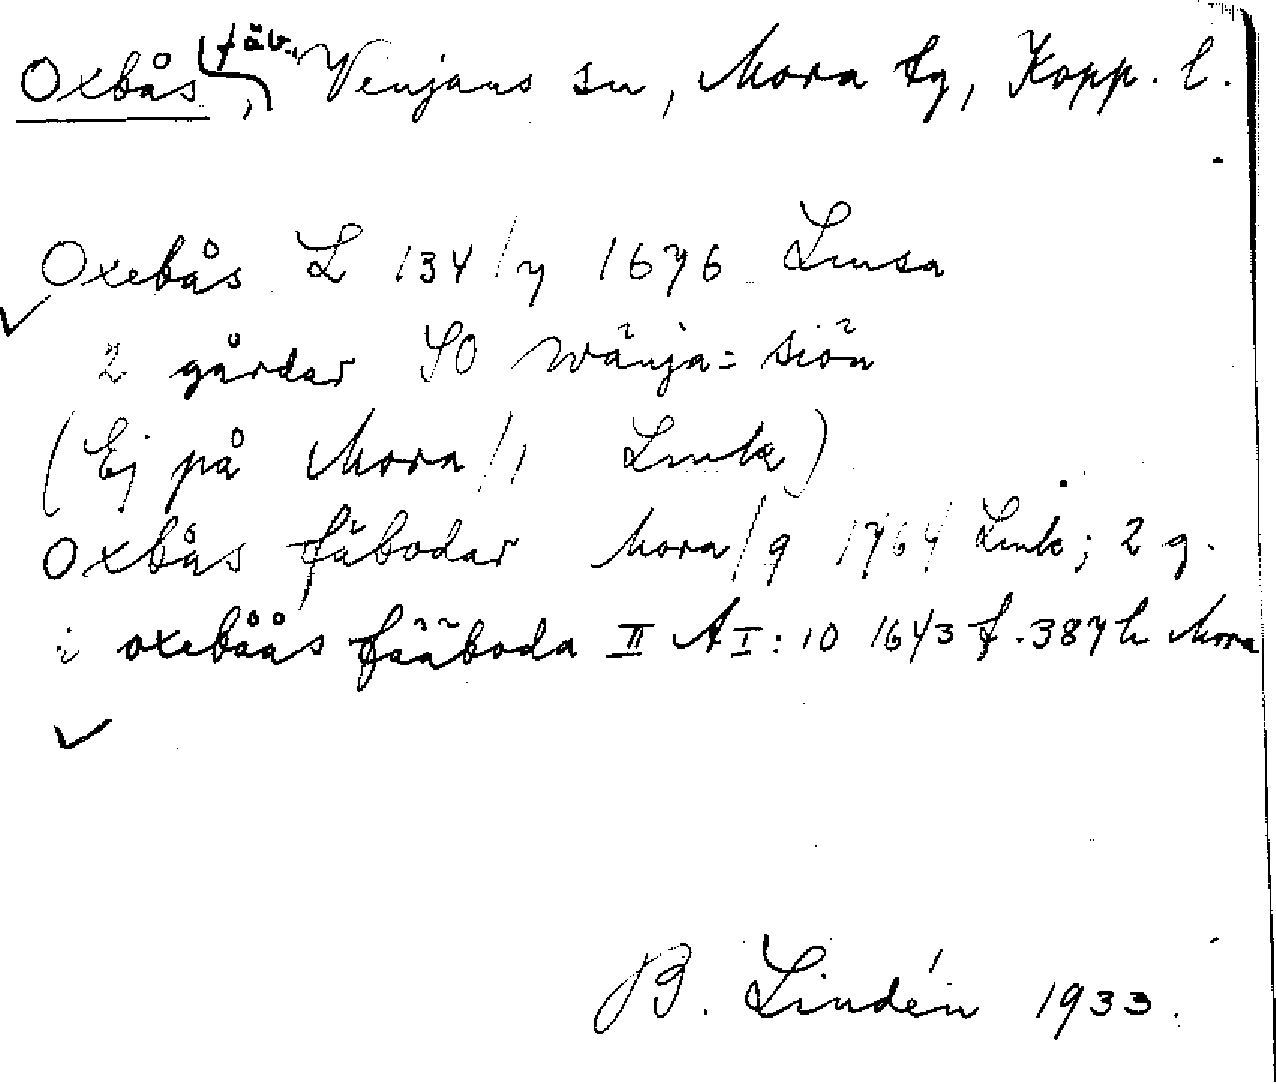 Oxbås, fäb., Venjans sn, Mora tg, Kopp. l.
Oxebås L 134/7 1676 Lmsa
2 gårdar SO Wänja= siön
(Ej på Mora/1 Lmk)
Oxbås fäbodar Mora/9 1764 Lmk; 2 g.
i oxebåås fääboda II A I: 10 1643 f. 387 h Mora
B. Lindén 1933.